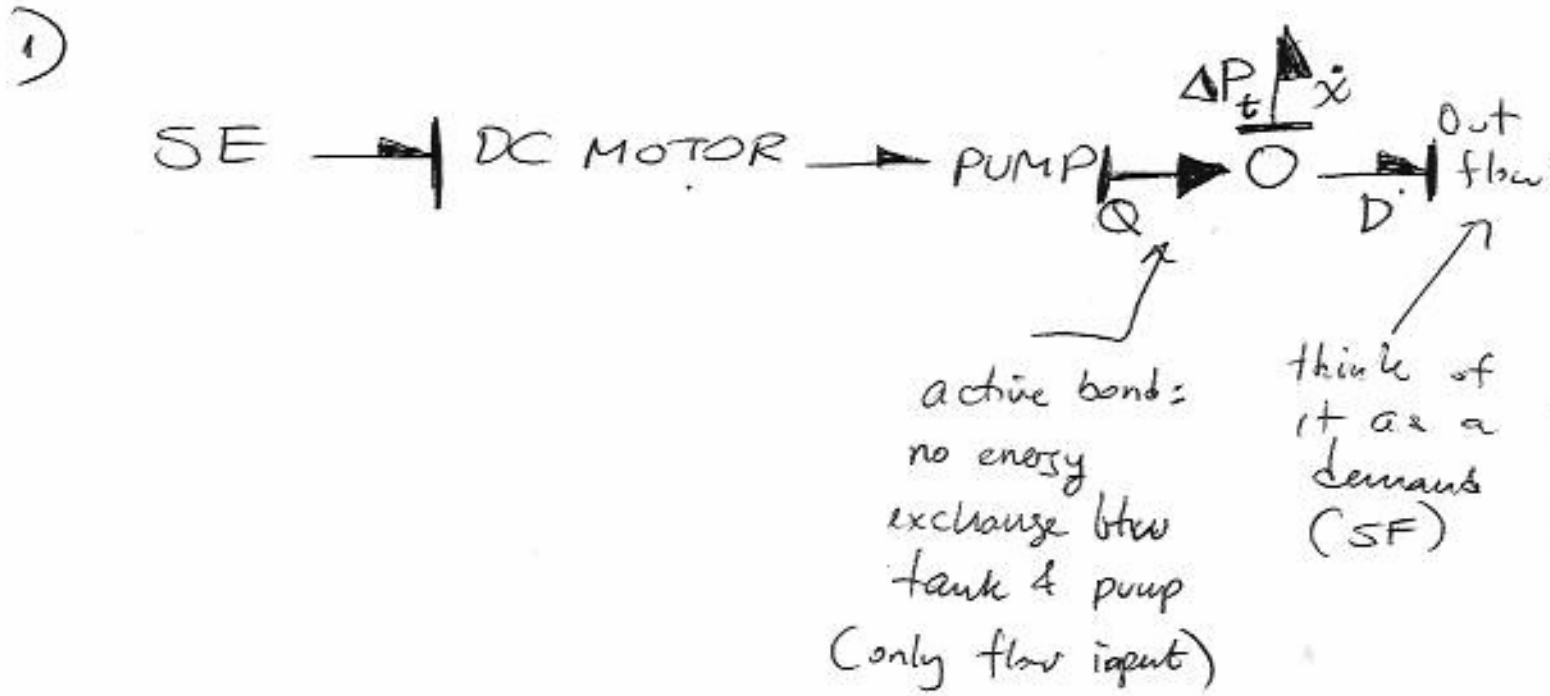 1)
ΔP_t ẋ
SE DC MOTOR PUMP Q O D Out
flow
active bond:
no energy
exchange btw
tank & pump
(only flow input)
think of
it as a
demand
(SF)